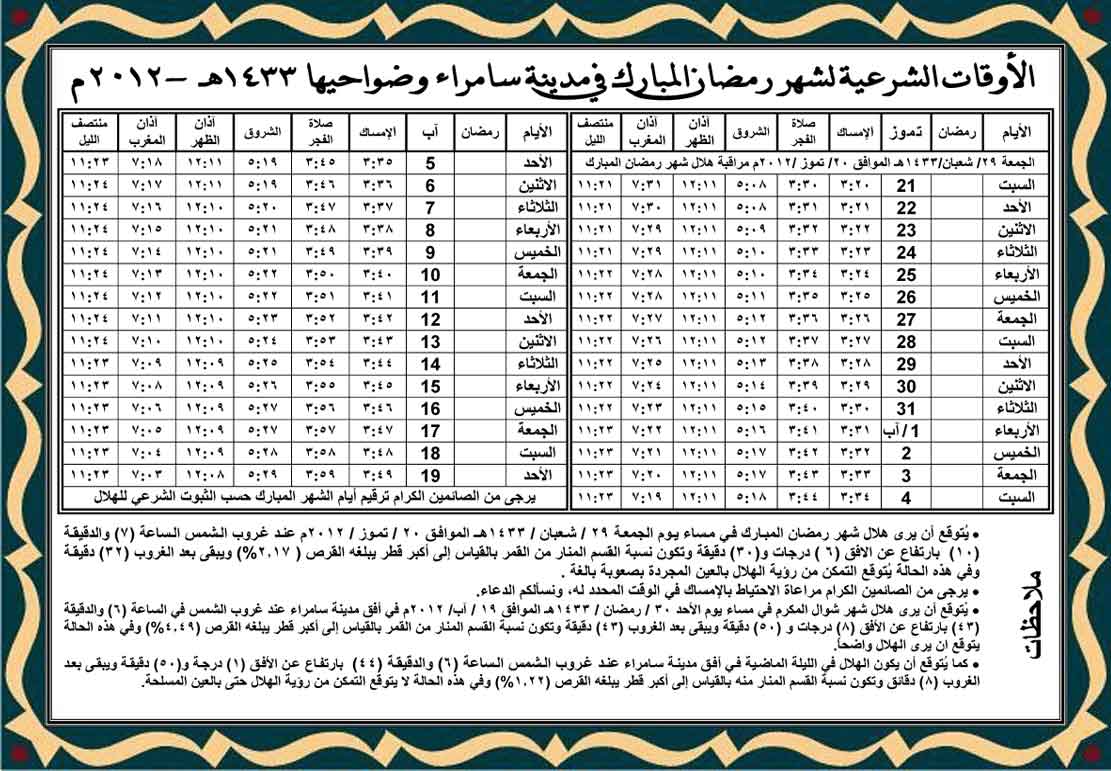 الأوقات الشرعية لشهر رمضان المبارك في مدينة سامراء وضواحيها ١٤٣٣هـ - ٢٠١٢م
الأيام رمضان تموز الإمساك صلاة الفجر الشروق أذان الظهر أذان المغرب منتصف الليل
الجمعة ٢٩/ شعبان/١٤٣٣هـ الموافق ٢٠/ تموز /٢٠١٢م مراقبة هلال شهر رمضان المبارك
السبت 21 ٣:٢٠ ٣:٣٠ ٥:٠٨ ١٢:١١ ٧:٣١ ١١:٢١
الأحد 22 ٣:٢١ ٣:٣١ ٥:٠٨ ١٢:١١ ٧:٣٠ ١١:٢١
الاثنين 23 ٣:٢٢ ٣:٣٢ ٥:٠٩ ١٢:١١ ٧:٢٩ ١١:٢١
الثلاثاء 24 ٣:٢٣ ٣:٣٣ ٥:١٠ ١٢:١١ ٧:٢٩ ١١:٢١
الأربعاء 25 ٣:٢٤ ٣:٣٤ ٥:١٠ ١٢:١١ ٧:٢٨ ١١:٢٢
الخميس 26 ٣:٢٥ ٣:٣٥ ٥:١١ ١٢:١١ ٧:٢٨ ١١:٢٢
الجمعة 27 ٣:٢٦ ٣:٣٦ ٥:١٢ ١٢:١١ ٧:٢٧ ١١:٢٢
السبت 28 ٣:٢٧ ٣:٣٧ ٥:١٢ ١٢:١١ ٧:٢٦ ١١:٢٢
الأحد 29 ٣:٢٨ ٣:٣٨ ٥:١٣ ١٢:١١ ٧:٢٥ ١١:٢٢
الاثنين 30 ٣:٢٩ ٣:٣٩ ٥:١٤ ١٢:١١ ٧:٢٤ ١١:٢٢
الثلاثاء 31 ٣:٣٠ ٣:٤٠ ٥:١٥ ١٢:١١ ٧:٢٣ ١١:٢٢
الأربعاء 1/ آب ٣:٣١ ٣:٤١ ٥:١٦ ١٢:١١ ٧:٢٢ ١١:٢٣
الخميس 2 ٣:٣٢ ٣:٤٢ ٥:١٧ ١٢:١١ ٧:٢١ ١١:٢٣
الجمعة 3 ٣:٣٣ ٣:٤٣ ٥:١٧ ١٢:١١ ٧:٢٠ ١١:٢٣
السبت 4 ٣:٣٤ ٣:٤٤ ٥:١٨ ١٢:١١ ٧:١٩ ١١:٢٣
الأيام رمضان آب الإمساك صلاة الفجر الشروق أذان الظهر أذان المغرب منتصف الليل
الأحد 5 ٣:٣٥ ٣:٤٥ ٥:١٩ ١٢:١١ ٧:١٨ ١١:٢٣
الاثنين 6 ٣:٣٦ ٣:٤٦ ٥:١٩ ١٢:١١ ٧:١٧ ١١:٢٤
الثلاثاء 7 ٣:٣٧ ٣:٤٧ ٥:٢٠ ١٢:١٠ ٧:١٦ ١١:٢٤
الأربعاء 8 ٣:٣٨ ٣:٤٨ ٥:٢١ ١٢:١٠ ٧:١٥ ١١:٢٤
الخميس 9 ٣:٣٩ ٣:٤٩ ٥:٢١ ١٢:١٠ ٧:١٤ ١١:٢٤
الجمعة 10 ٣:٤٠ ٣:٥٠ ٥:٢٢ ١٢:١٠ ٧:١٣ ١١:٢٤
السبت 11 ٣:٤١ ٣:٥١ ٥:٢٢ ١٢:١٠ ٧:١٢ ١١:٢٤
الأحد 12 ٣:٤٢ ٣:٥٢ ٥:٢٣ ١٢:١٠ ٧:١١ ١١:٢٤
الاثنين 13 ٣:٤٣ ٣:٥٣ ٥:٢٤ ١٢:١٠ ٧:١٠ ١١:٢٤
الثلاثاء 14 ٣:٤٤ ٣:٥٤ ٥:٢٥ ١٢:٠٩ ٧:٠٩ ١١:٢٣
الأربعاء 15 ٣:٤٥ ٣:٥٥ ٥:٢٦ ١٢:٠٩ ٧:٠٨ ١١:٢٣
الخميس 16 ٣:٤٦ ٣:٥٦ ٥:٢٧ ١٢:٠٩ ٧:٠٦ ١١:٢٣
الجمعة 17 ٣:٤٧ ٣:٥٧ ٥:٢٧ ١٢:٠٩ ٧:٠٥ ١١:٢٣
السبت 18 ٣:٤٨ ٣:٥٨ ٥:٢٨ ١٢:٠٩ ٧:٠٤ ١١:٢٣
الأحد 19 ٣:٤٩ ٣:٥٩ ٥:٢٩ ١٢:٠٨ ٧:٠٣ ١١:٢٣
يرجى من الصائمين الكرام ترقيم أيام الشهر المبارك حسب الثبوت الشرعي للهلال
ملاحظات
• يُتوقع أن يرى هلال شهر رمضان المبارك في مساء يوم الجمعة ٢٩ / شعبان / ١٤٣٣هـ الموافق ٢٠ / تموز / ٢٠١٢م عند غروب الشمس الساعة (٧) والدقيقة
(١٠) بارتفاع عن الافق (٦) درجات و(٣٠) دقيقة وتكون نسبة القسم المنار من القمر بالقياس إلى أكبر قطر يبلغه القرص (٢.١٧%) ويبقى بعد الغروب (٣٢) دقيقة
وفي هذه الحالة يُتوقع التمكن من رؤية الهلال بالعين المجردة بصعوبة بالغة .
• يرجى من الصائمين الكرام مراعاة الاحتياط بالإمساك في الوقت المحدد له، ونسألكم الدعاء.
• يُتوقع أن يرى هلال شهر شوال المكرم في مساء يوم الأحد ٣٠ / رمضان / ١٤٣٣هـ الموافق ١٩ / آب/ ٢٠١٢م في أفق مدينة سامراء عند غروب الشمس في الساعة (٦) والدقيقة
(٤٣) بارتفاع عن الأفق (٨) درجات و (٥٠) دقيقة ويبقى بعد الغروب (٤٣) دقيقة وتكون نسبة القسم المنار من القمر بالقياس إلى أكبر قطر يبلغه القرص (٤.٤٩%) وفي هذه الحالة
يتوقع ان يرى الهلال واضحاً.
• كما يُتوقع أن يكون الهلال في الليلة الماضية في أفق مدينة سامراء عند غروب الشمس الساعة (٦) والدقيقة (٤٤) بارتفاع عن الأفق (١) درجة و(٥٠) دقيقة ويبقى بعد
الغروب (٨) دقائق وتكون نسبة القسم المنار منه بالقياس إلى أكبر قطر يبلغه القرص (١.٢٢%) وفي هذه الحالة لا يتوقع التمكن من رؤية الهلال حتى بالعين المسلحة.